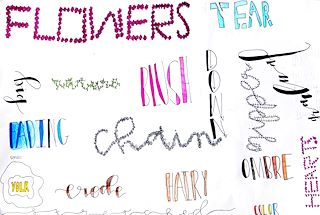 FLOWERS
TEAR
BLUSH
DOWN
zipper
FADING
chain
OMBRE
HEARTS
YOLK
erode
HAIRY
COLOR